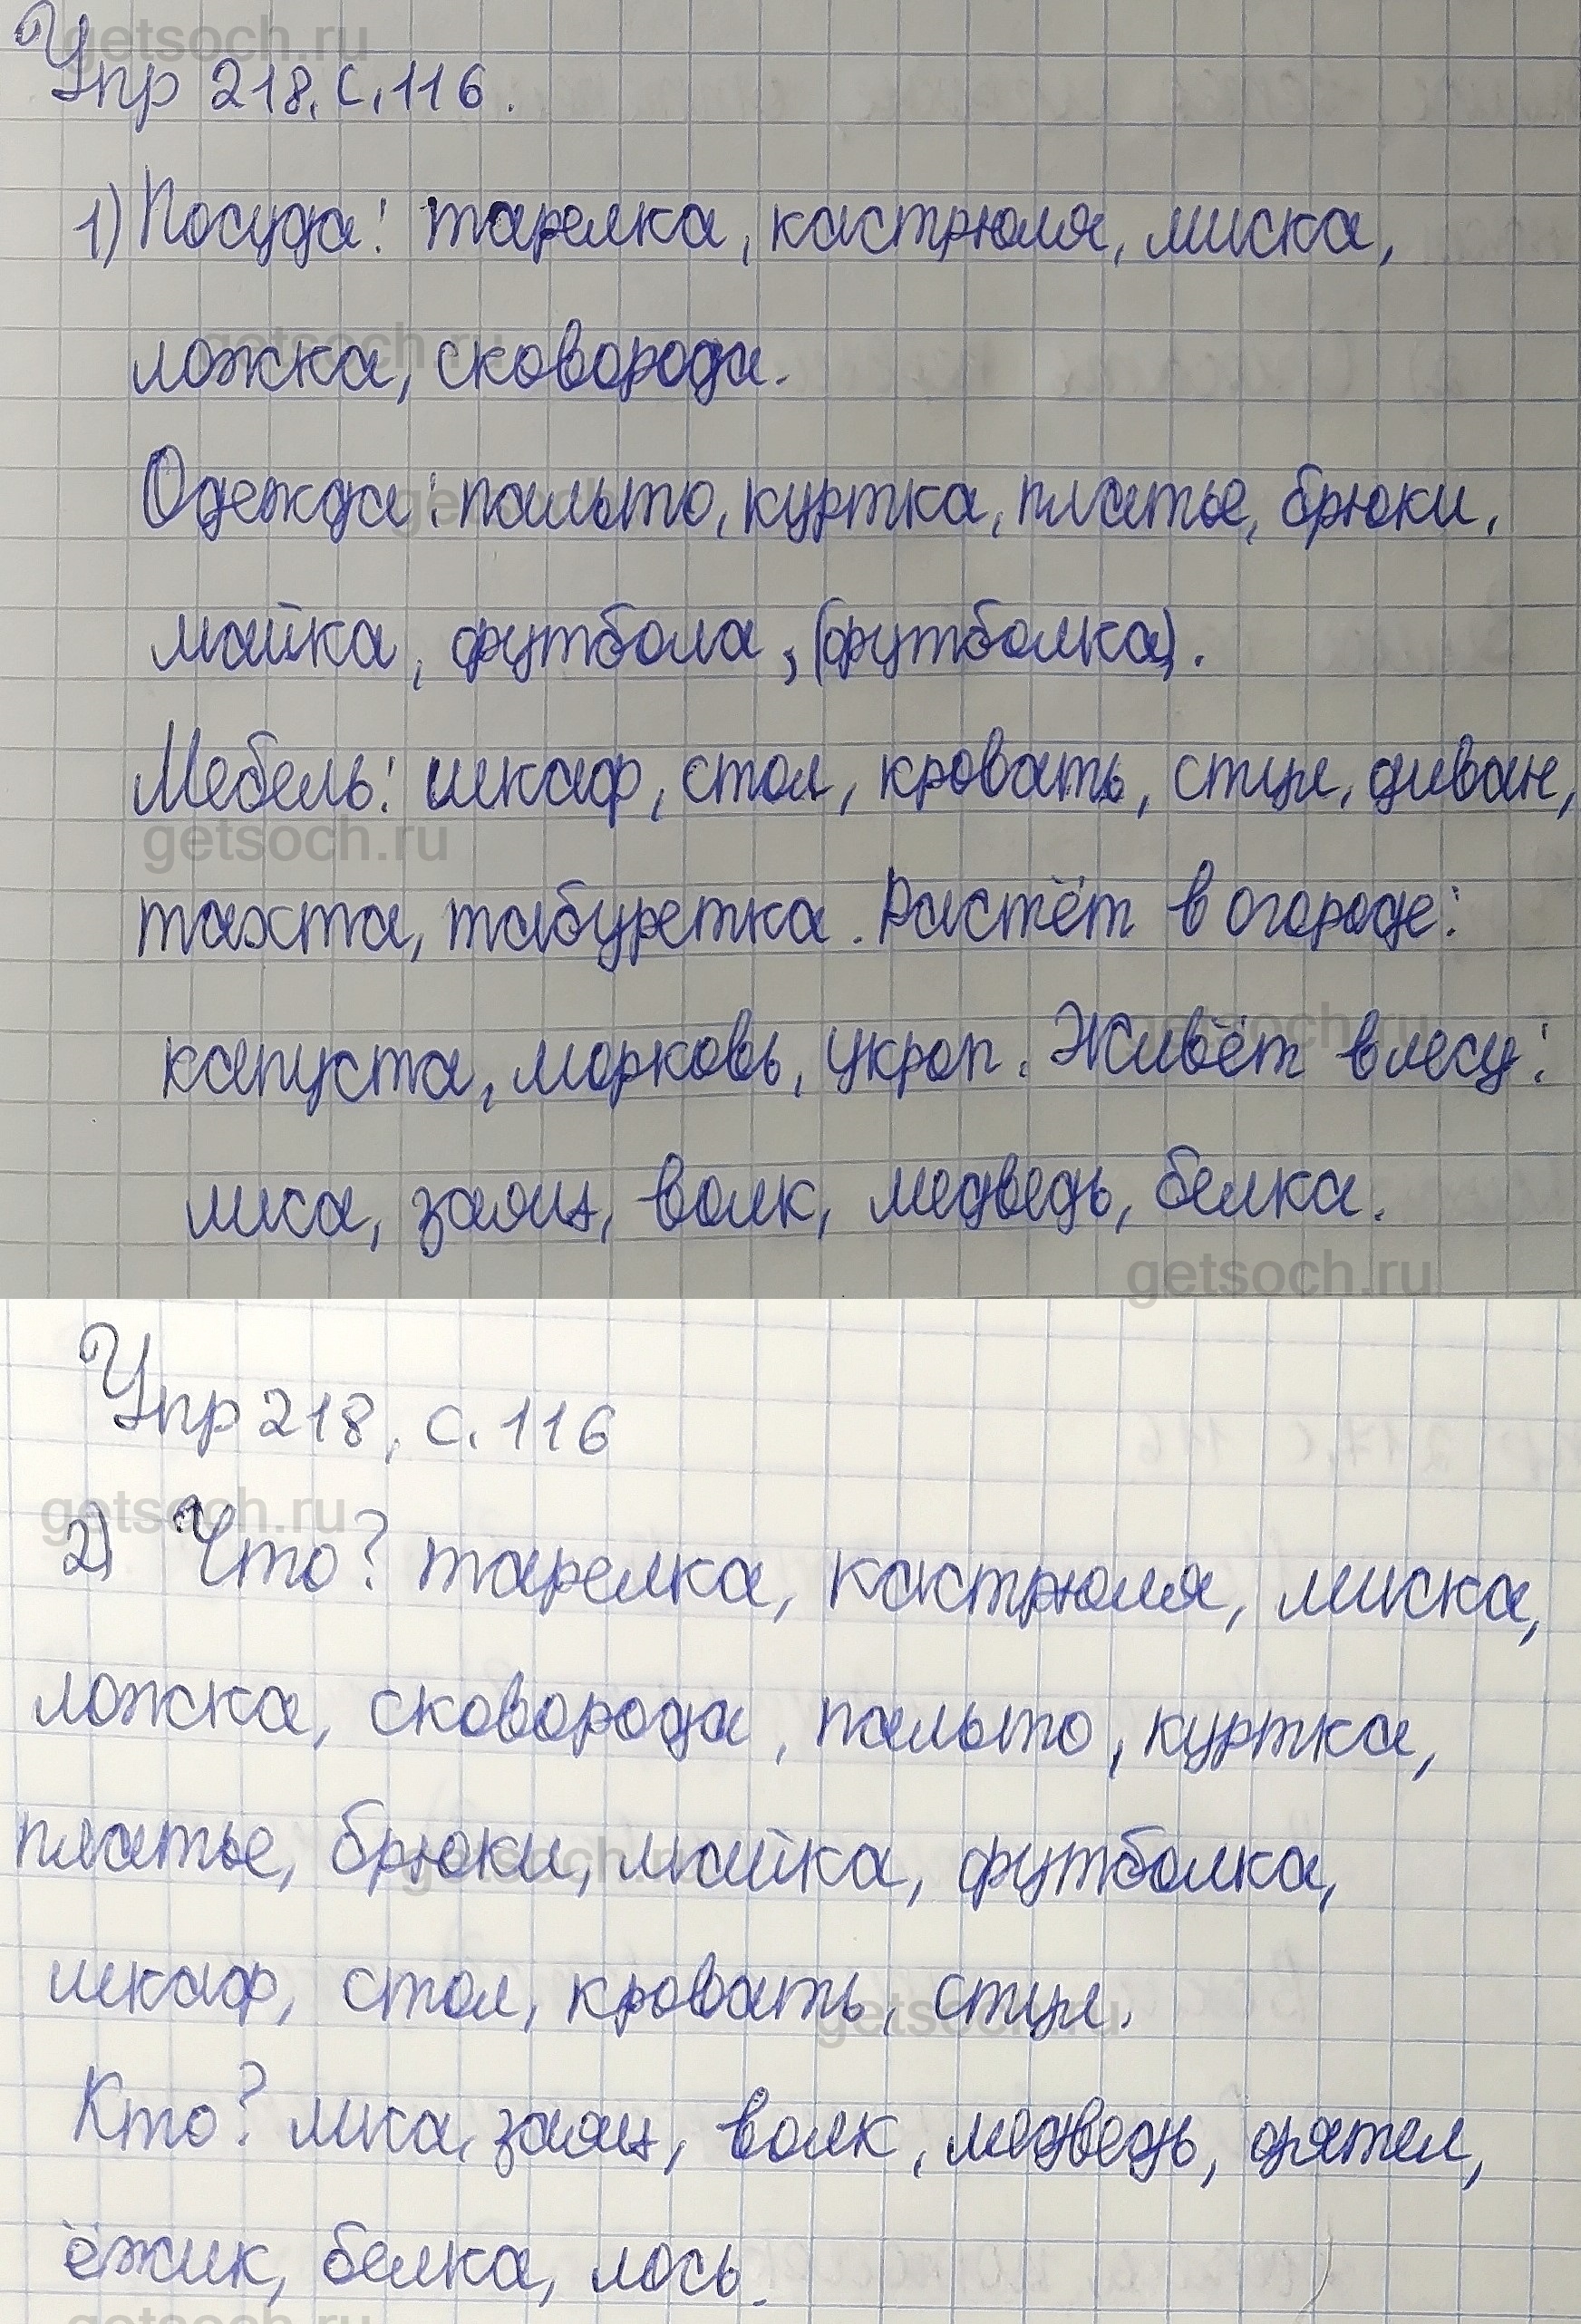 Упр 218, с. 116.
1) Посуда: тарелка, кастрюля, миска,
ложка, сковорода.
Одежда: пальто, куртка, платье, брюки,
майка, футбола, (футболка).
Мебель: шкаф, стол, кровать, стул, диван,
тахта, табуретка. Растёт в огороде:
капуста, морковь, укроп. Живёт в лесу:
лиса, заяц, волк, медведь, белка.
Упр 218, с. 116
2) Что? тарелка, кастрюля, миска,
ложка, сковорода, пальто, куртка,
платье, брюки, майка, футболка,
шкаф, стол, кровать, стул.
Кто? лиса, заяц, волк, медведь, дятел,
ёжик, белка, лось.
getsoch.ru
getsoch.ru
getsoch.ru
getsoch.ru
getsoch.ru
getsoch.ru
getsoch.ru
getsoch.ru
getsoch.ru
getsoch.ru